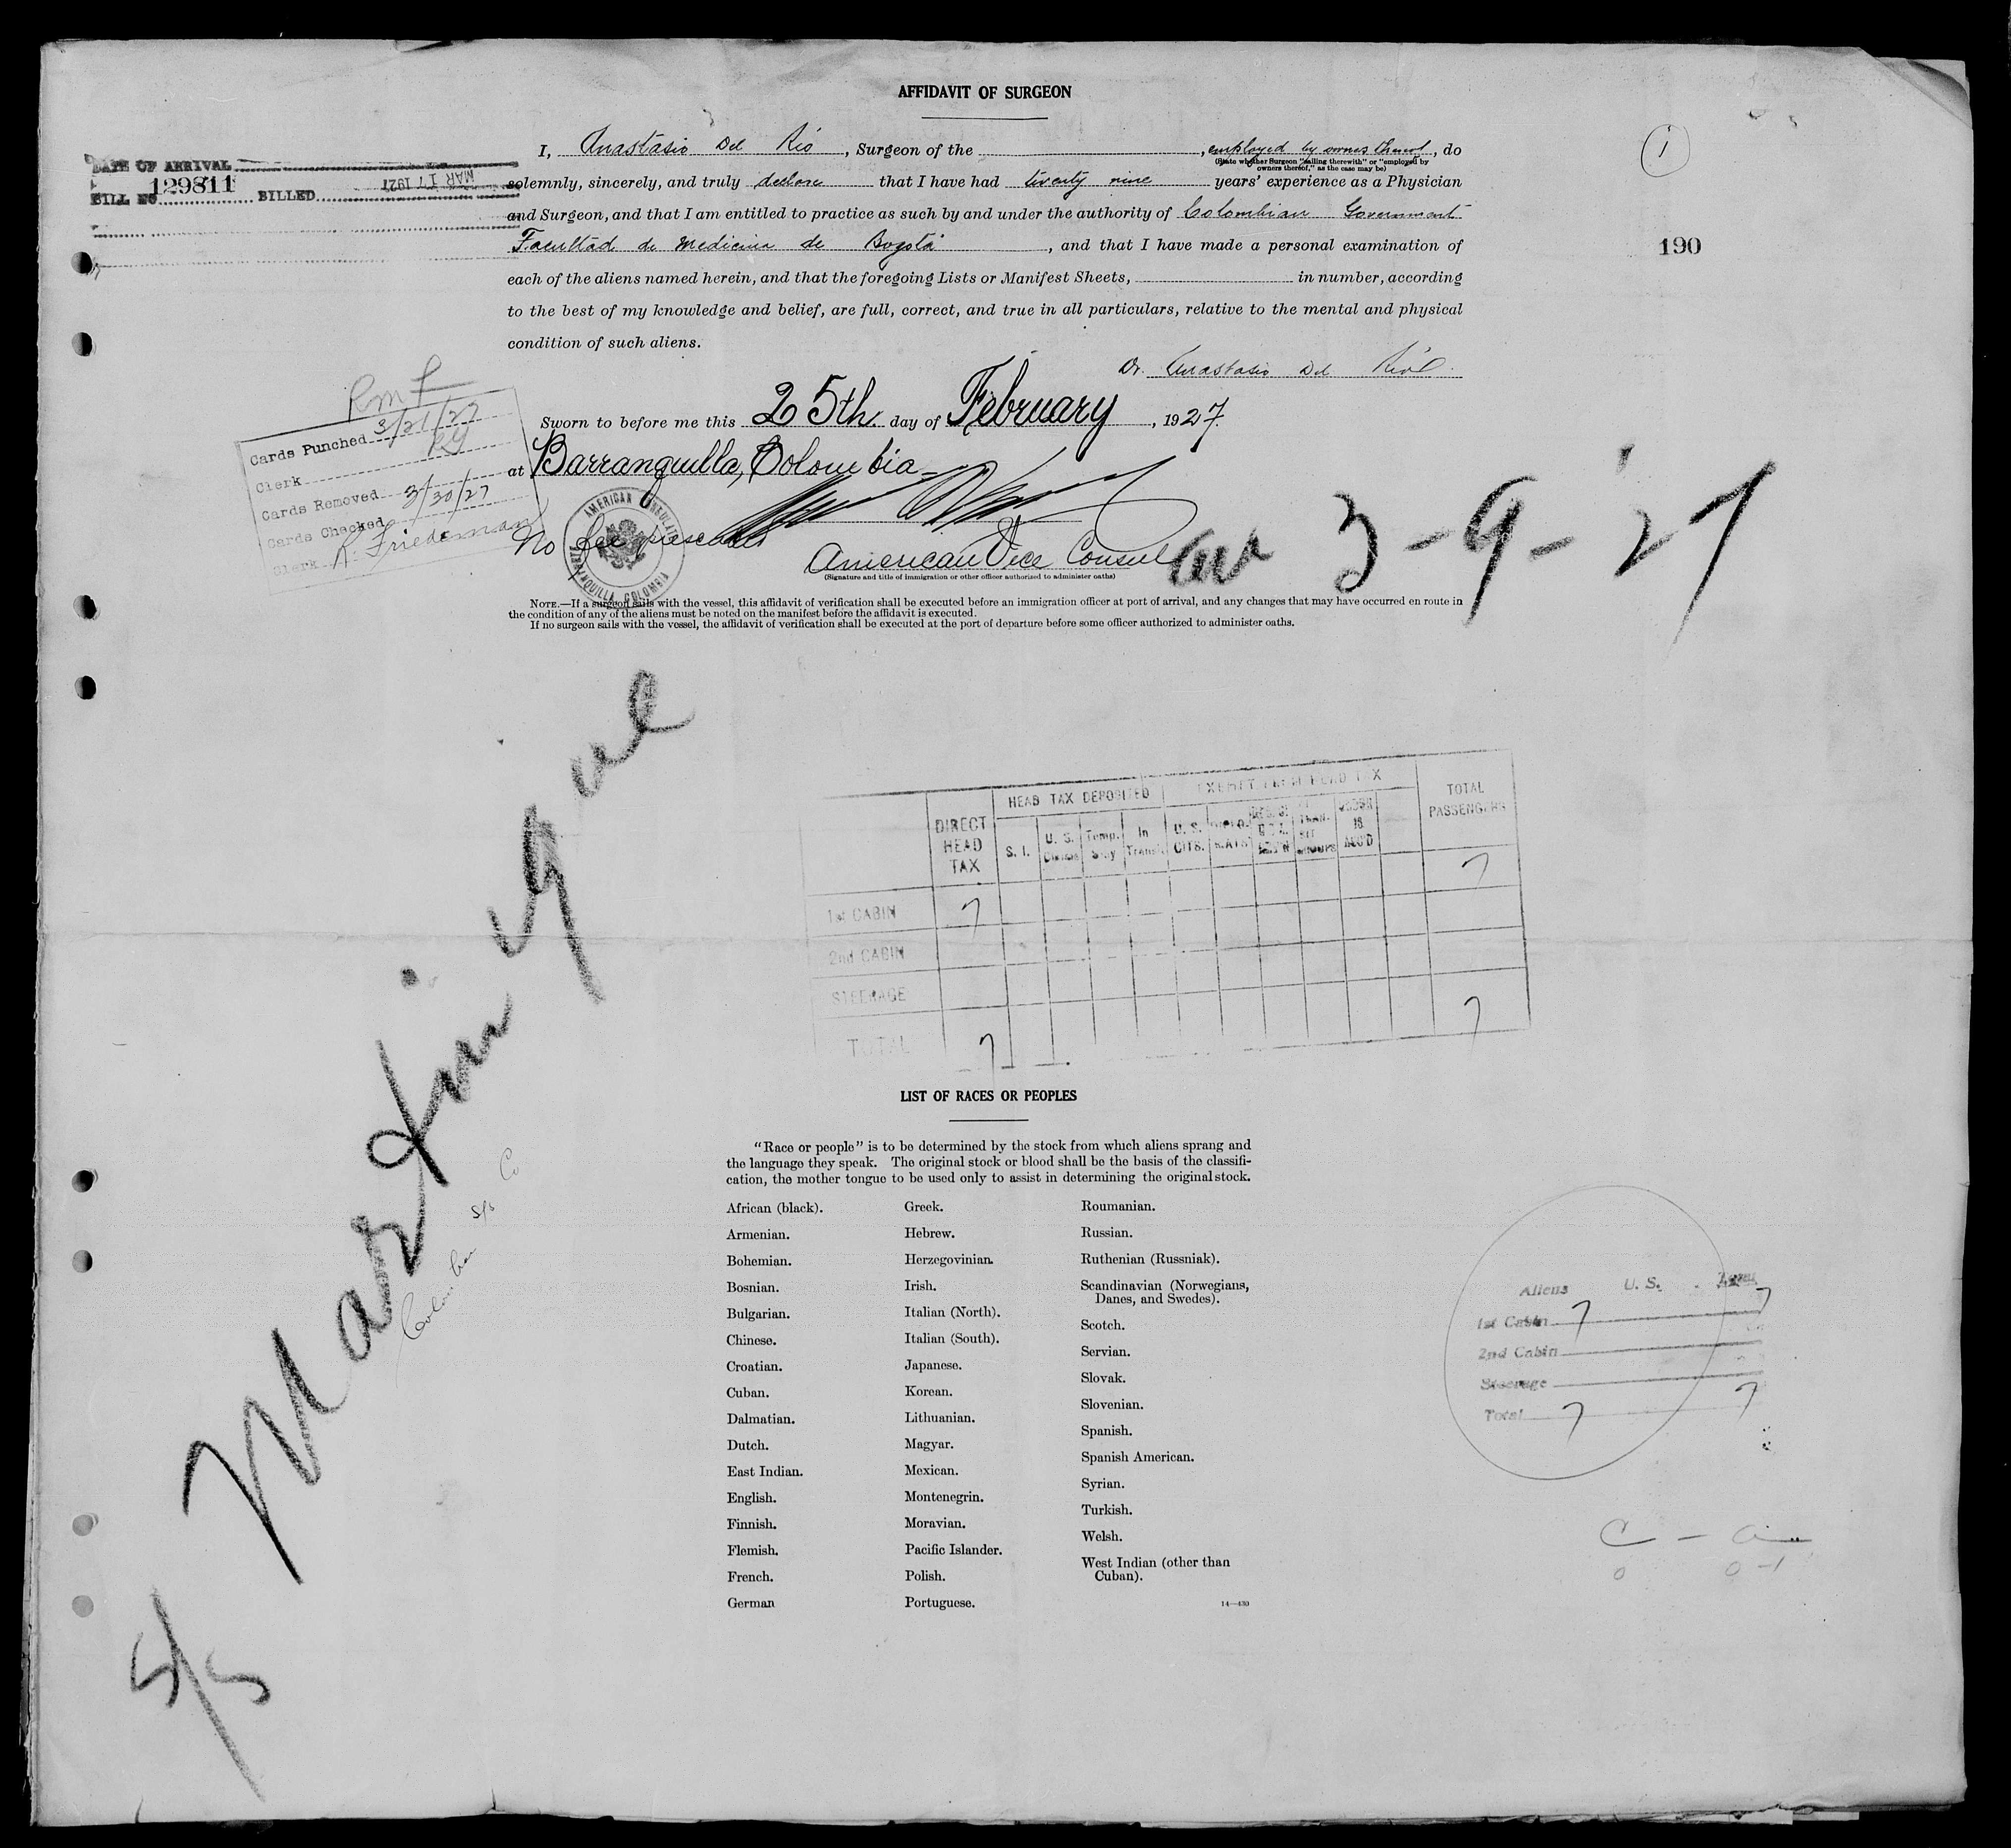 AFFIDAVIT OF SURGEON
I, Anastasio Del Rio, Surgeon of the , employed by owners thereof, do
(State whether Surgeon "sailing therewith" or "employed by owners thereof," as the case may be)
solemnly, sincerely, and truly declare that I have had twenty nine years' experience as a Physician
and Surgeon, and that I am entitled to practice as such by and under the authority of Colombian Government
Facultad de Medicina de Bogotá, and that I have made a personal examination of
each of the aliens named herein, and that the foregoing Lists or Manifest Sheets, in number, according
to the best of my knowledge and belief, are full, correct, and true in all particulars, relative to the mental and physical
condition of such aliens.
Dr. Anastasio Del Rio
DATE OF ARRIVAL
BILL NO 129811 BILLED MAR 17 1927
1
190
Sworn to before me this 25th day of February, 1927.
at Barranquilla, Colombia
No fee prescribed
AMERICAN CONSULATE
BARRANQUILLA, COLOMBIA
American Vice Consul
(Signature and title of immigration or other officer authorized to administer oaths)
Cards Punched 3/21/27
Clerk
Cards Removed 3/30/27
Cards Checked
Clerk R. Friedeman
Arr 3-9-27
NOTE.—If a surgeon sails with the vessel, this affidavit of verification shall be executed before an immigration officer at port of arrival, and any changes that may have occurred en route in
the condition of any of the aliens must be noted on the manifest before the affidavit is executed.
If no surgeon sails with the vessel, the affidavit of verification shall be executed at the port of departure before some officer authorized to administer oaths.
S/S Martinique
Colombian S/S Co
HEAD TAX DEPOSITED EXEMPT FROM HEAD TAX TOTAL PASSENGERS
DIRECT HEAD TAX S. I. U. S. Temp. Stay In Transit U. S. CITS.
7
1st CABIN 7
2nd CABIN
STEERAGE
7
TOTAL 7
LIST OF RACES OR PEOPLES
"Race or people" is to be determined by the stock from which aliens sprang and
the language they speak. The original stock or blood shall be the basis of the classifi-
cation, the mother tongue to be used only to assist in determining the original stock.
African (black).
Armenian.
Bohemian.
Bosnian.
Bulgarian.
Chinese.
Croatian.
Cuban.
Dalmatian.
Dutch.
East Indian.
English.
Finnish.
Flemish.
French.
German
Greek.
Hebrew.
Herzegovinian.
Irish.
Italian (North).
Italian (South).
Japanese.
Korean.
Lithuanian.
Magyar.
Mexican.
Montenegrin.
Moravian.
Pacific Islander.
Polish.
Portuguese.
Roumanian.
Russian.
Ruthenian (Russniak).
Scandinavian (Norwegians,
Danes, and Swedes).
Scotch.
Servian.
Slovak.
Slovenian.
Spanish.
Spanish American.
Syrian.
Turkish.
Welsh.
West Indian (other than
Cuban).
14—430
Aliens U. S. Total
1st Cabin 7 7
2nd Cabin
Steerage
Total 7 7